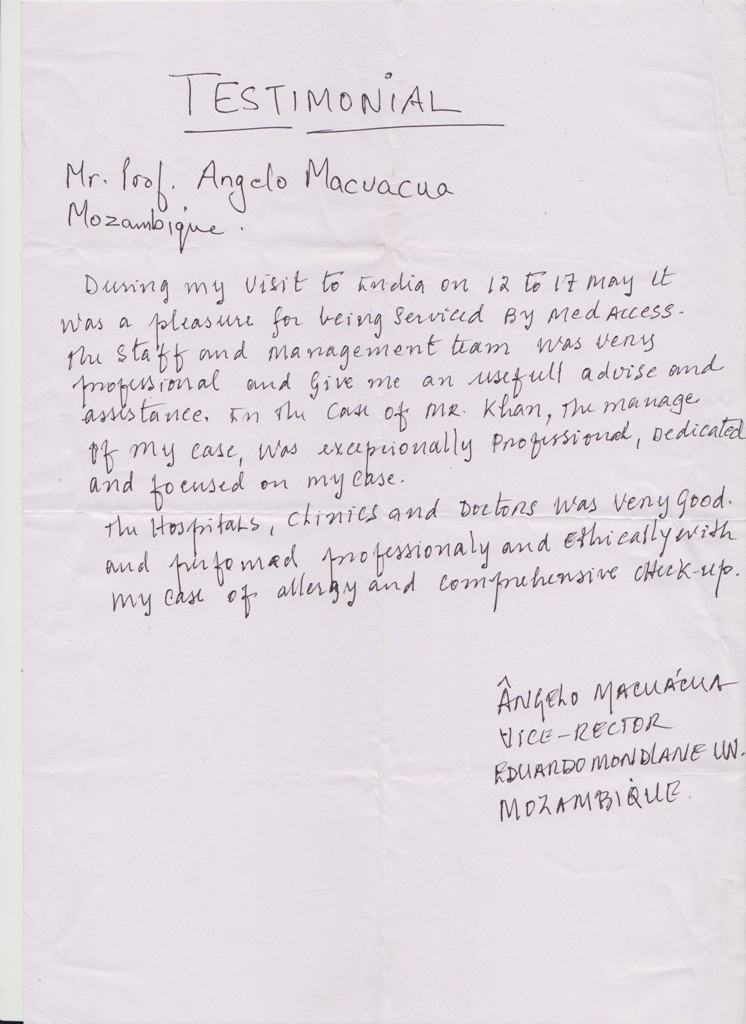 TESTIMONIAL
Mr. Prof. Angelo Macuacua
Mozambique.
During my visit to India on 12 to 17 May it
was a pleasure for being serviced By Med Access.
The Staff and management team was very
professional and give me an usefull advise and
assistance. In the case of MR. Khan, The manage
of my case, was excepionally Professional, Dedicated
and focused on my case.
The Hospitals, Clinics and Doctors was very good.
and perfomed professionaly and Ethically with
my case of allergy and comprehensive check-up.
Ângelo MACUÁCUA
VICE-RECTOR
EDUARDO MONDLANE UN.
MOZAMBIQUE.